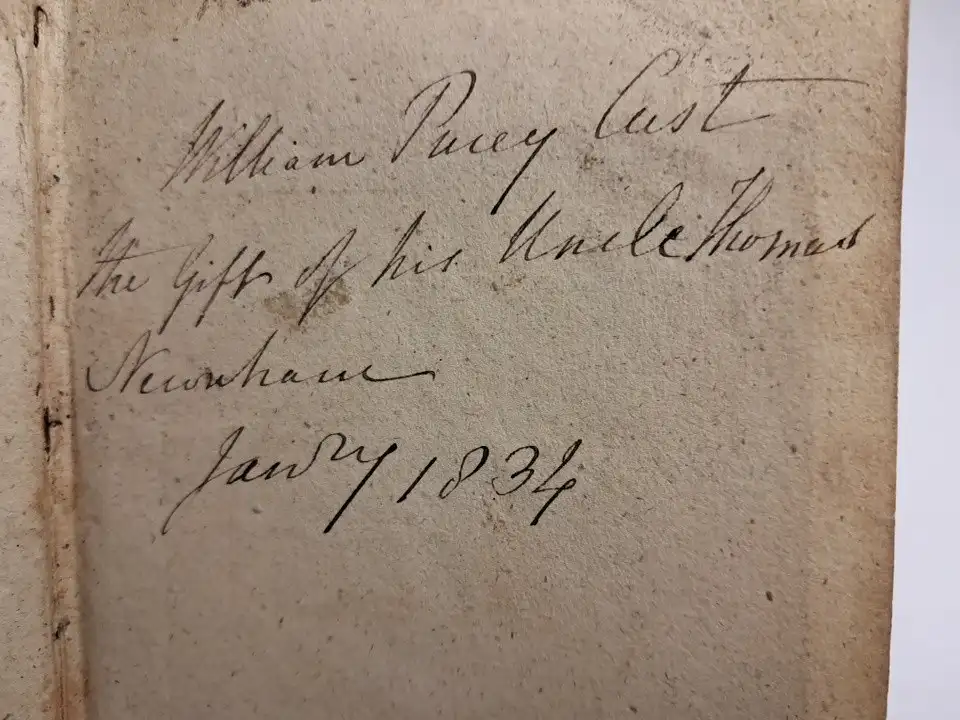 William Pacey Cust
the Gift of his Uncle Thomas
Newnham
Janry 1834